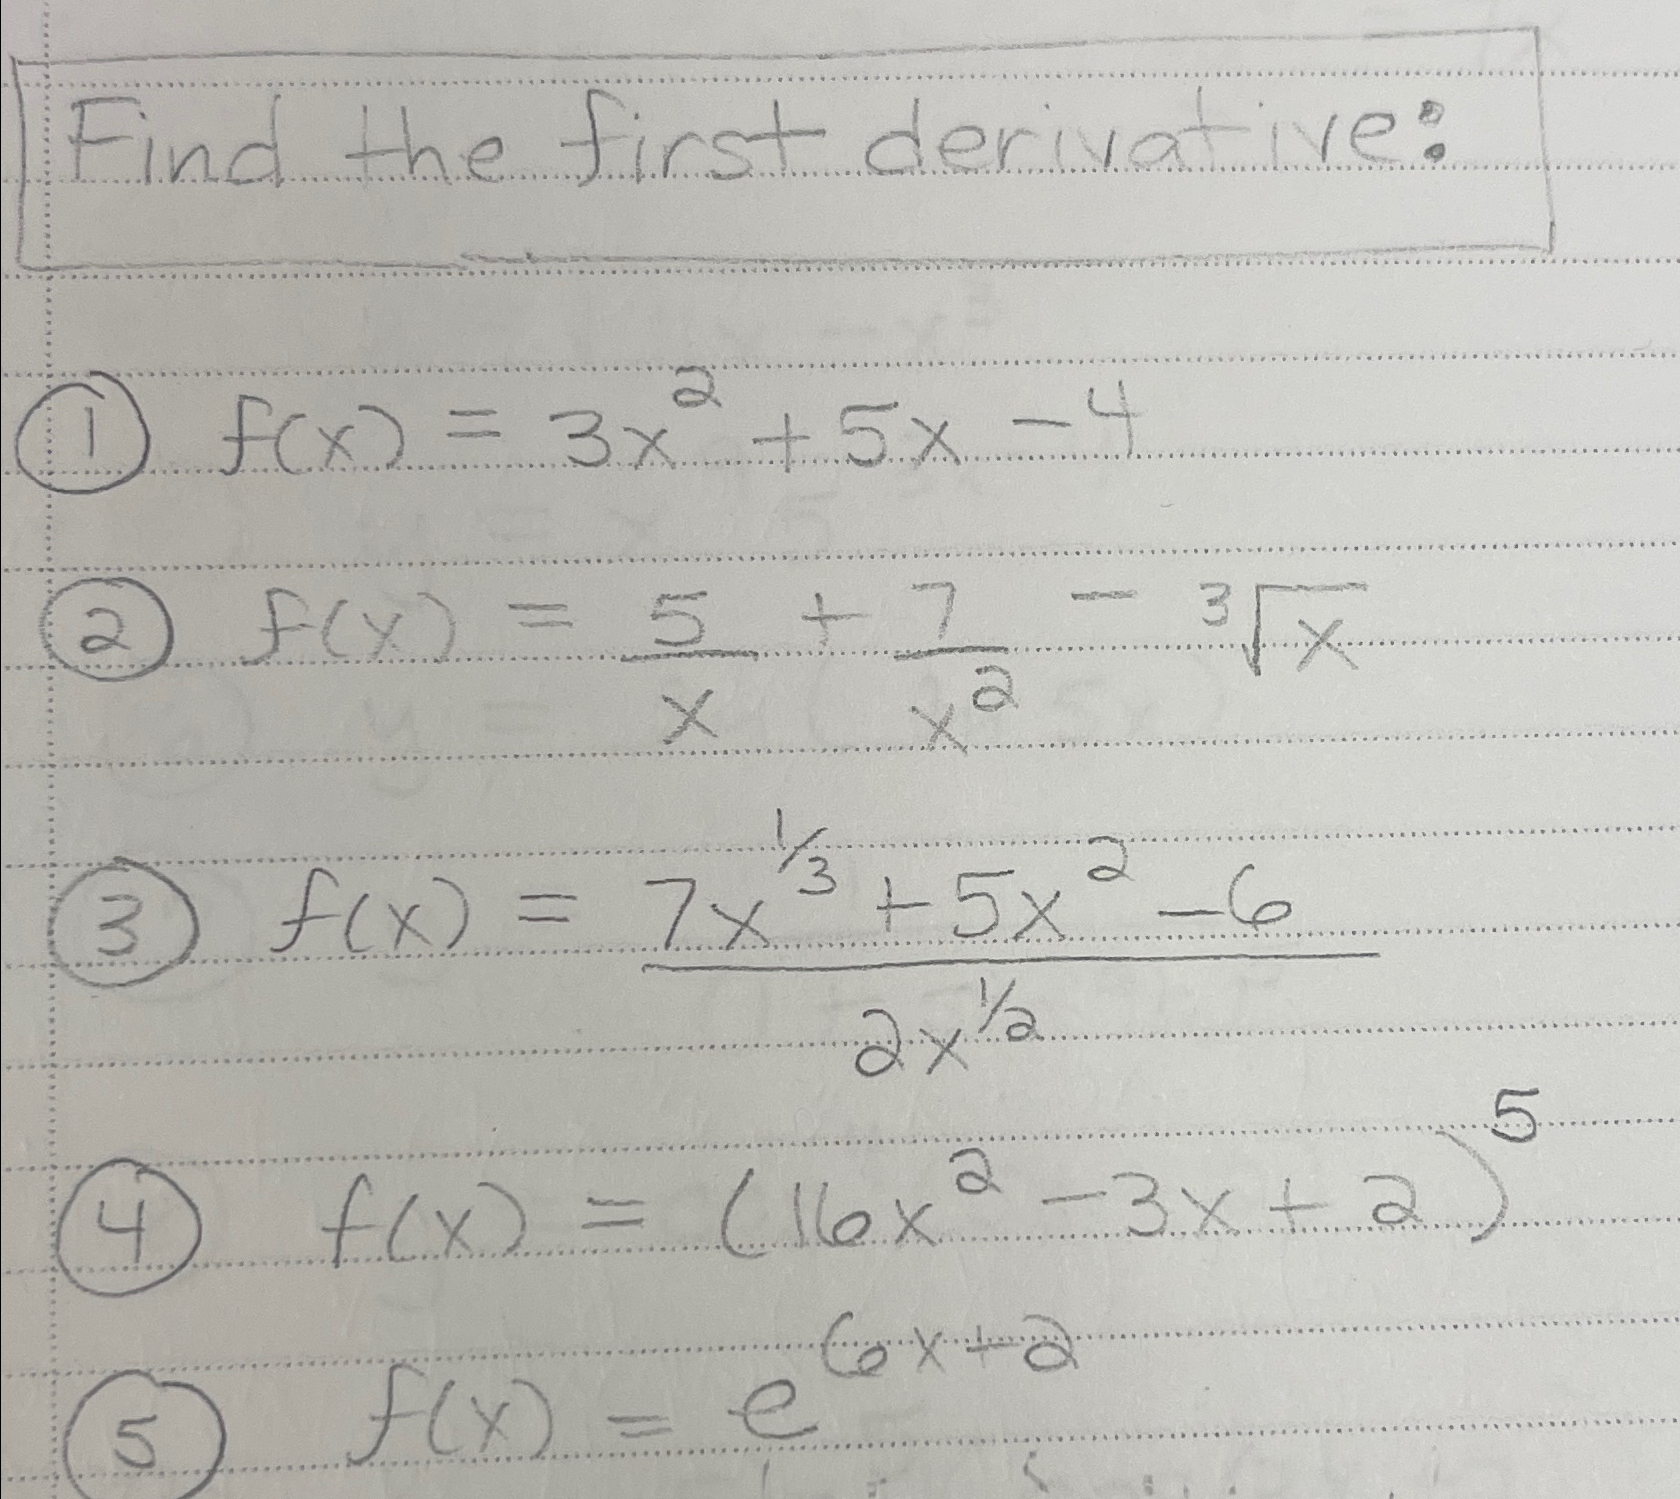 Find the first derivative:
① f(x) = 3x² + 5x - 4
② f(x) = 5/x + 7/x² - ³√x
③ f(x) = (7x^(1/3) + 5x² - 6)/(2x^(1/2))
④ f(x) = (16x² - 3x + 2)⁵
⑤ f(x) = e^(6x+2)